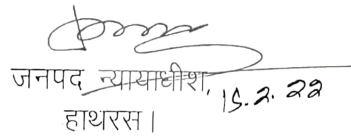 जनपद न्यायाधीश, 15.2.22
हाथरस।